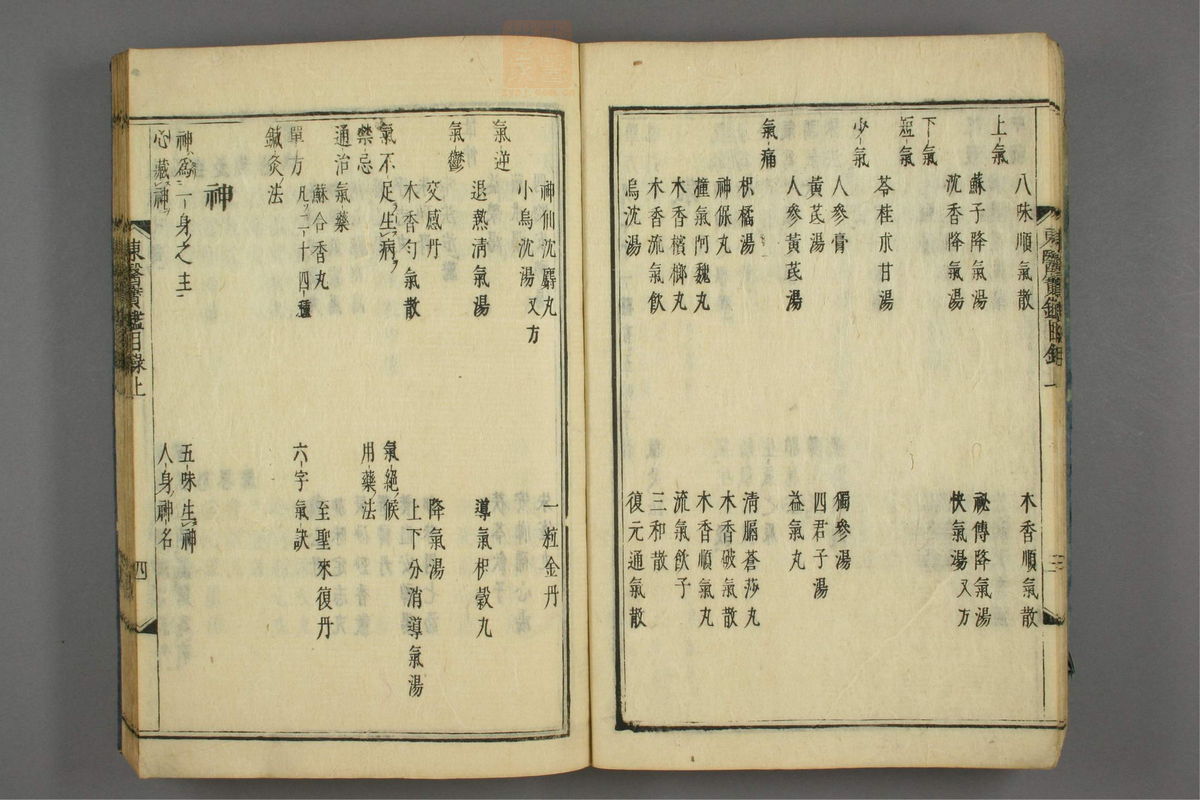 上氣
八味順氣散 木香順氣散
蘇子降氣湯 祕傳降氣湯
沈香降氣湯 快氣湯又方
下氣
短氣
苓桂朮甘湯
少氣
人參膏 獨參湯
黃芪湯 四君子湯
人參黃芪湯 益氣丸
氣痛
枳橘湯 清膈蒼莎丸
神保丸 木香破氣散
撞氣阿魏丸 木香順氣丸
木香檳榔丸 流氣飮子
木香流氣飮 三和散
烏沈湯 復元通氣散
東醫寶鑑目錄上
三
氣逆
神仙沈麝丸 一粒金丹
小烏沈湯又方
退熱淸氣湯 導氣枳殼丸
氣鬱
交感丹 降氣湯
木香勻氣散 上下分消導氣湯
氣不足生病 氣絕候
禁忌 用藥法
通治氣藥
蘇合香丸 至聖來復丹
單方 凡二十四種 六字氣訣
鍼灸法
神
神爲一身之主 五味生神
心藏神 人身神名
東醫寶鑑目錄上
四